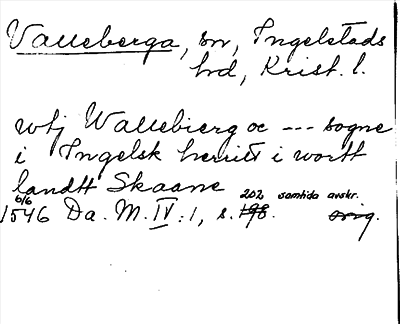 Valleberga, sn, Ingelstads
hd, Krist. l.
utj Wallebierg oc --- sogne
i Ingelsk herritt i wortt
landtt Skaane
6/6 202 samtida avskr.
1546 Da. M. IV:1, s. 198. orig.